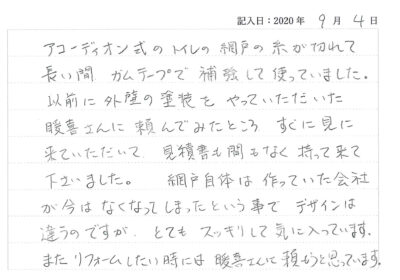 記入日：2020年 9月 4日
アコーディオン式のトイレの網戸の糸が切れて
長い間 ガムテープで 補強して使っていました。
以前に外壁の塗装を やっていただいた
暖喜さんに頼んでみたところ すぐに見に
来ていただいて、見積書も間もなく持って来て
下さいました。 網戸自体は作っていた会社
が今はなくなってしまったという事で デザインは
違うのですが、とても スッキリして気に入っています。
また リフォームしたい時には 暖喜さんに頼もうと思っています。